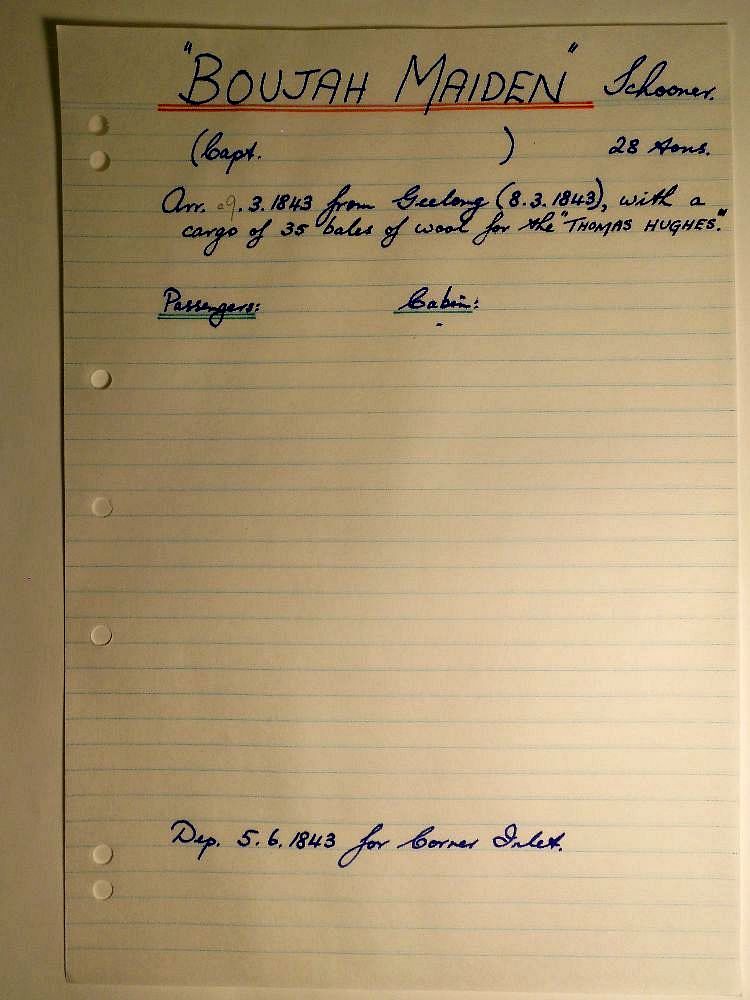 "BOUJAH MAIDEN" Schooner.
(Capt. ) 28 tons.
Arr. 9.3.1843 from Geelong (8.3.1843), with a
cargo of 35 bales of wool for the "THOMAS HUGHES".
Passengers: Cabin:
-
Dep. 5.6.1843 for Corner Inlet.